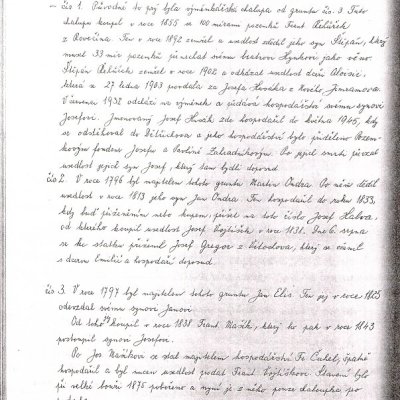 - čís 1. Původně to prý byla výměnkářská chalupa od gruntu čís 3. Tuto
chalupu koupil v roce 1855 se 400 mírami pozemků Frant Řehůřek
z Rovečína. Ten v roce 1892 zemřel a usedlost zdědil jeho syn Štěpán, který
musel 33 mír pozemků přenechat svému bratrovi Hynkovi jako věno.
Štěpán Řehůřek zemřel v roce 1902 a odkázal usedlost dceři Aloisii.
která se 27 ledna 1903 provdala za Josefa Husáka z Nového Jimramova.
V červenci 1932 odešli na výměnek a předává hospodářství svému synovi
Josefovi. Jmenovaný Josef Husák zde hospodařil do května 1945, kdy
se odstěhoval do Bělůnkova a jeho hospodářství bylo přiděleno Pozem-
kovým fondem Josefu a Pavlíně Zahradníkovým. Po jejich smrti převzal
usedlost jejich syn Josef, který tam bydlí doposud
čís 2. V roce 1796 byl majitelem tohoto gruntu Martin Ondra. Po něm dědil
usedlost v roce 1813 jeho syn Jan Ondra. Ten hospodařil do roku 1833,
kdy buď přiženěním nebo koupí přišel na toto číslo Josef Halva.
od kterého koupil usedlost Josef Bojtíšek v roce 1838. Dne 6. srpna
se ke statku přiženil Josef Gregor z Vítochova, který se oženil
s dcerou Emilií a hospodaří doposud.
čís. 3. V roce 1797 byl majitelem tohoto gruntu Jan Elis. Ten jej v roce 1825
odevzdal svému synovi Janovi.
Od toho koupil v roce 1838 Frant. Mašík, který ho pak v roce 1843
postoupil synovi Josefovi.
Po Jos Mašíkovi se stal majitelem hospodářství Fr. Cuhel, špatně
hospodařil a byl nucen usedlost prodat Frant. Bojtíškovi. Stavení bylo
při velké bouři 1875 pobořeno a nyní je z něho pouze chaloupka po